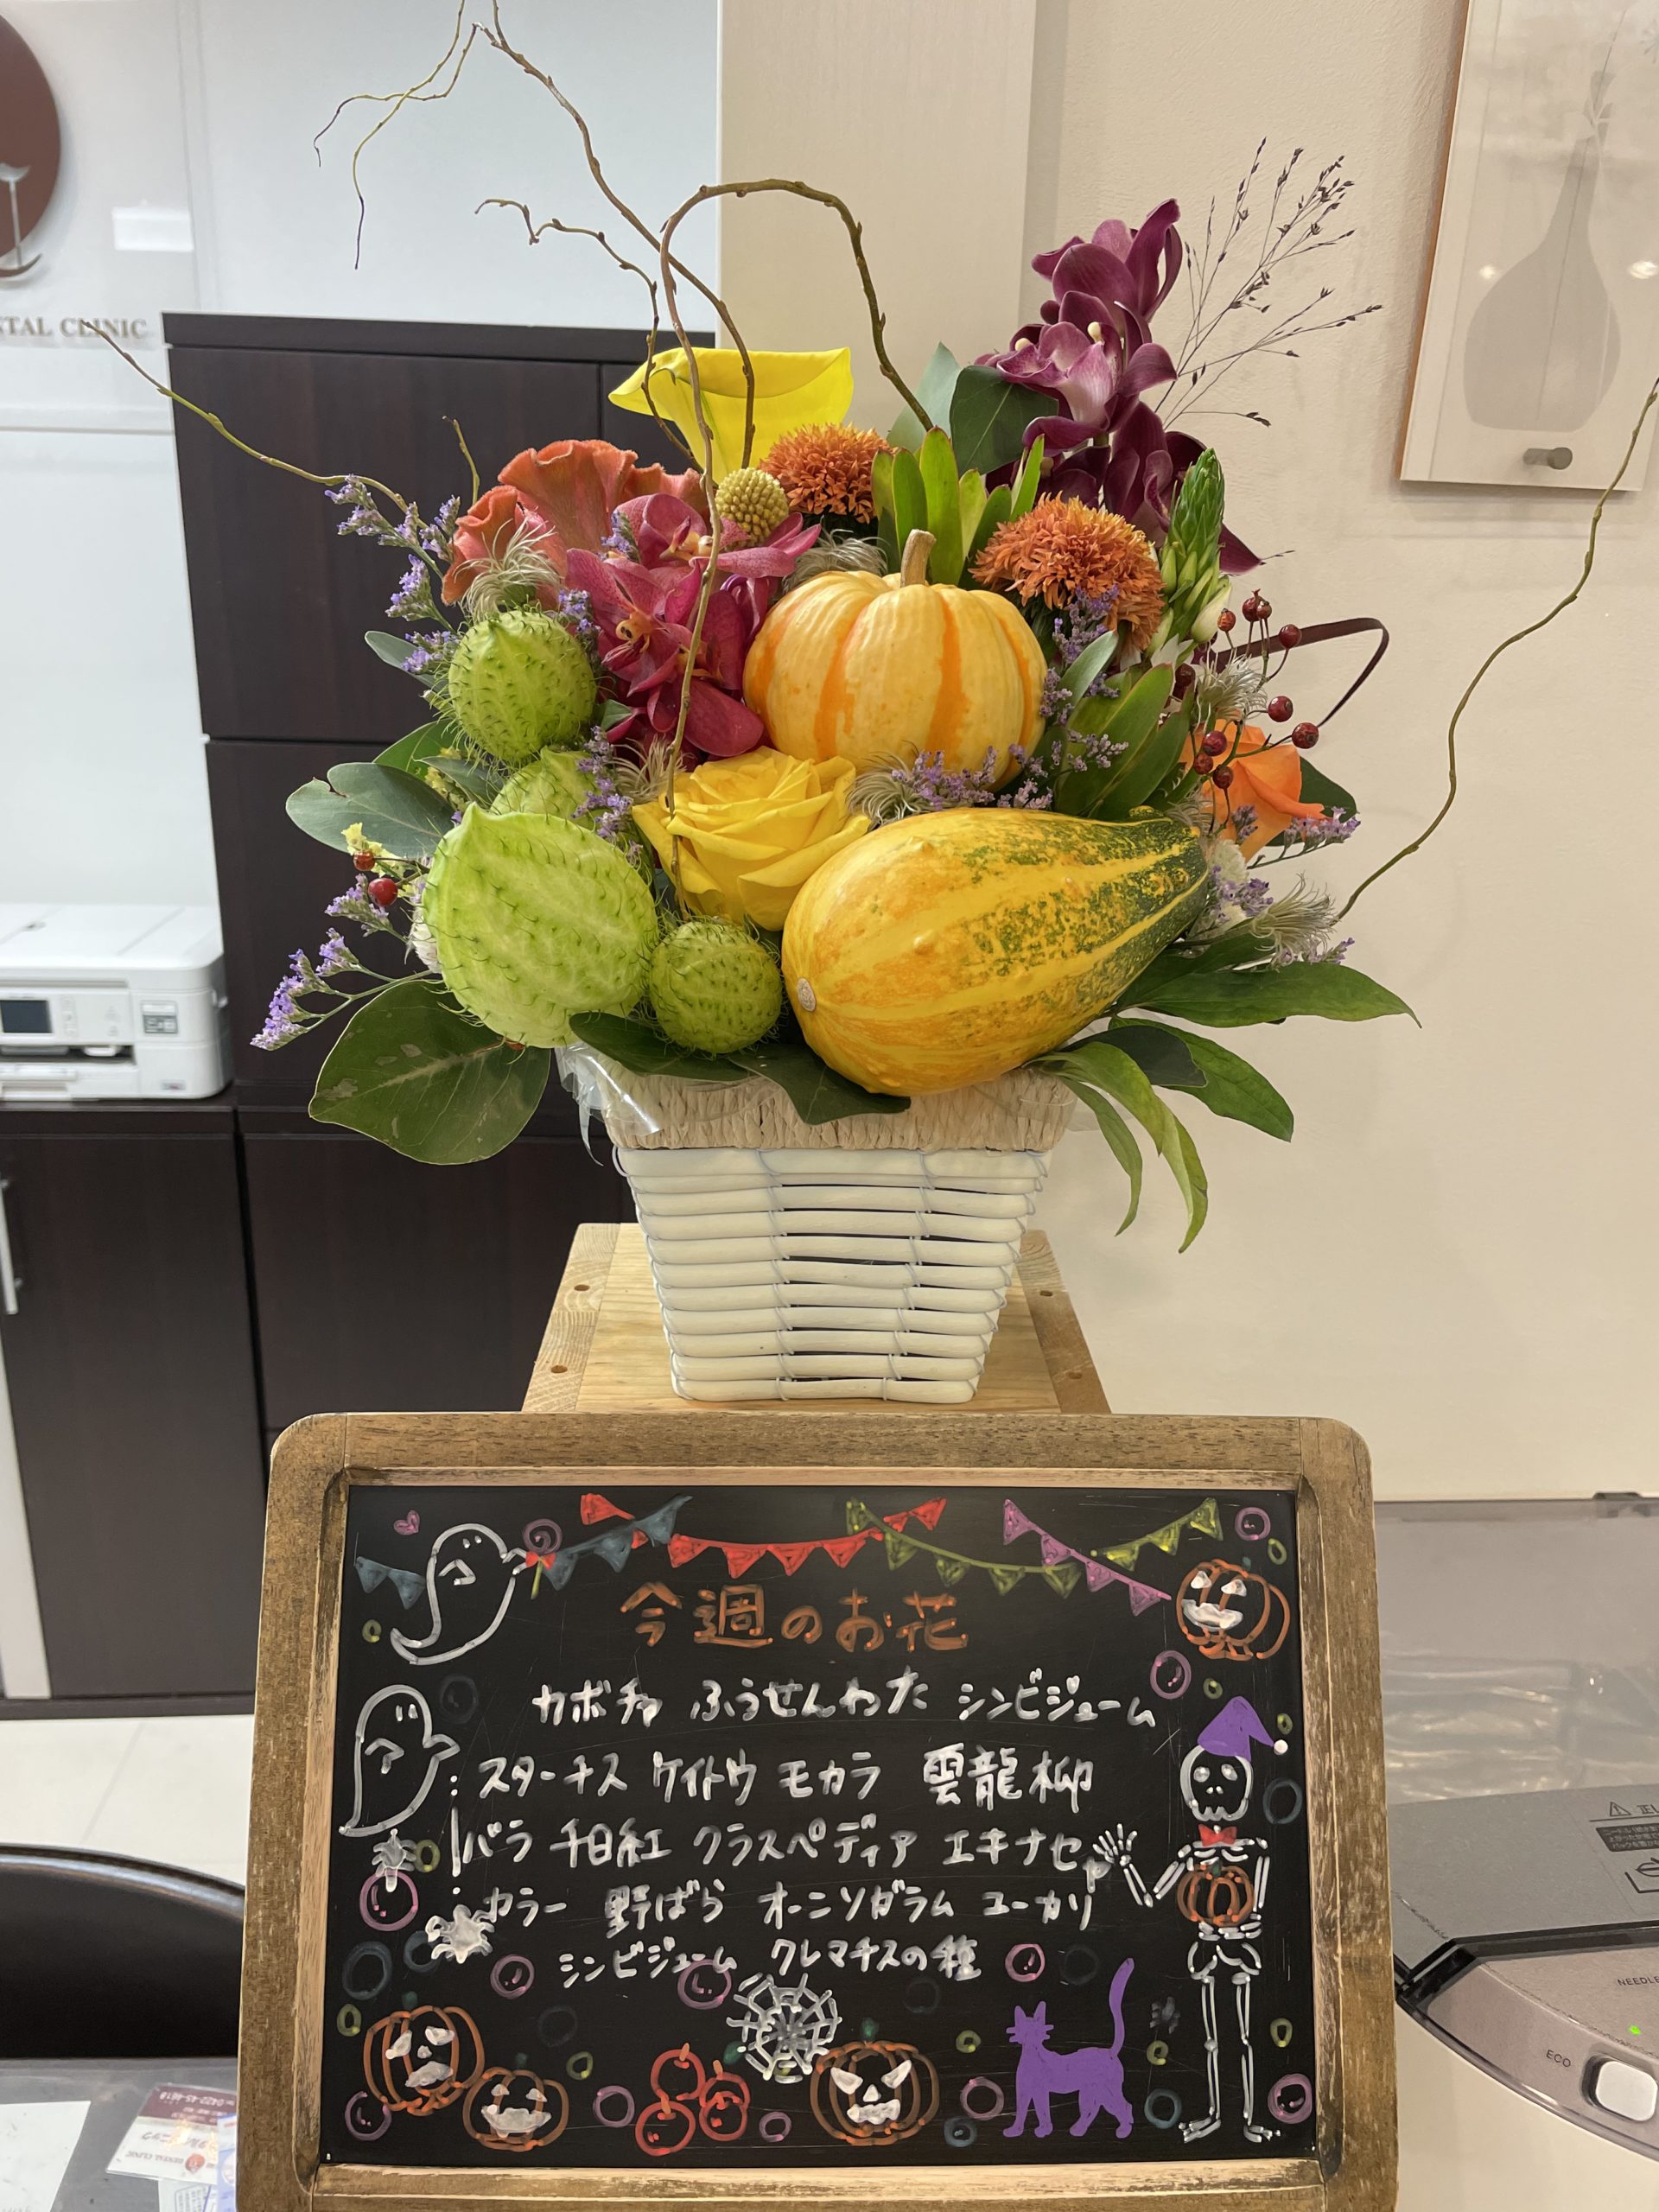 STAL CLINIC
今週のお花
カボチャ ふうせんわた シンビジューム
スターチス ケイトウ モカラ 雲龍柳
バラ 千日紅 クラスペディア エキナセア
カラー 野ばら オーニソガラム ユーカリ
シンビジューム クレマチスの種
NEEDLE
ECO